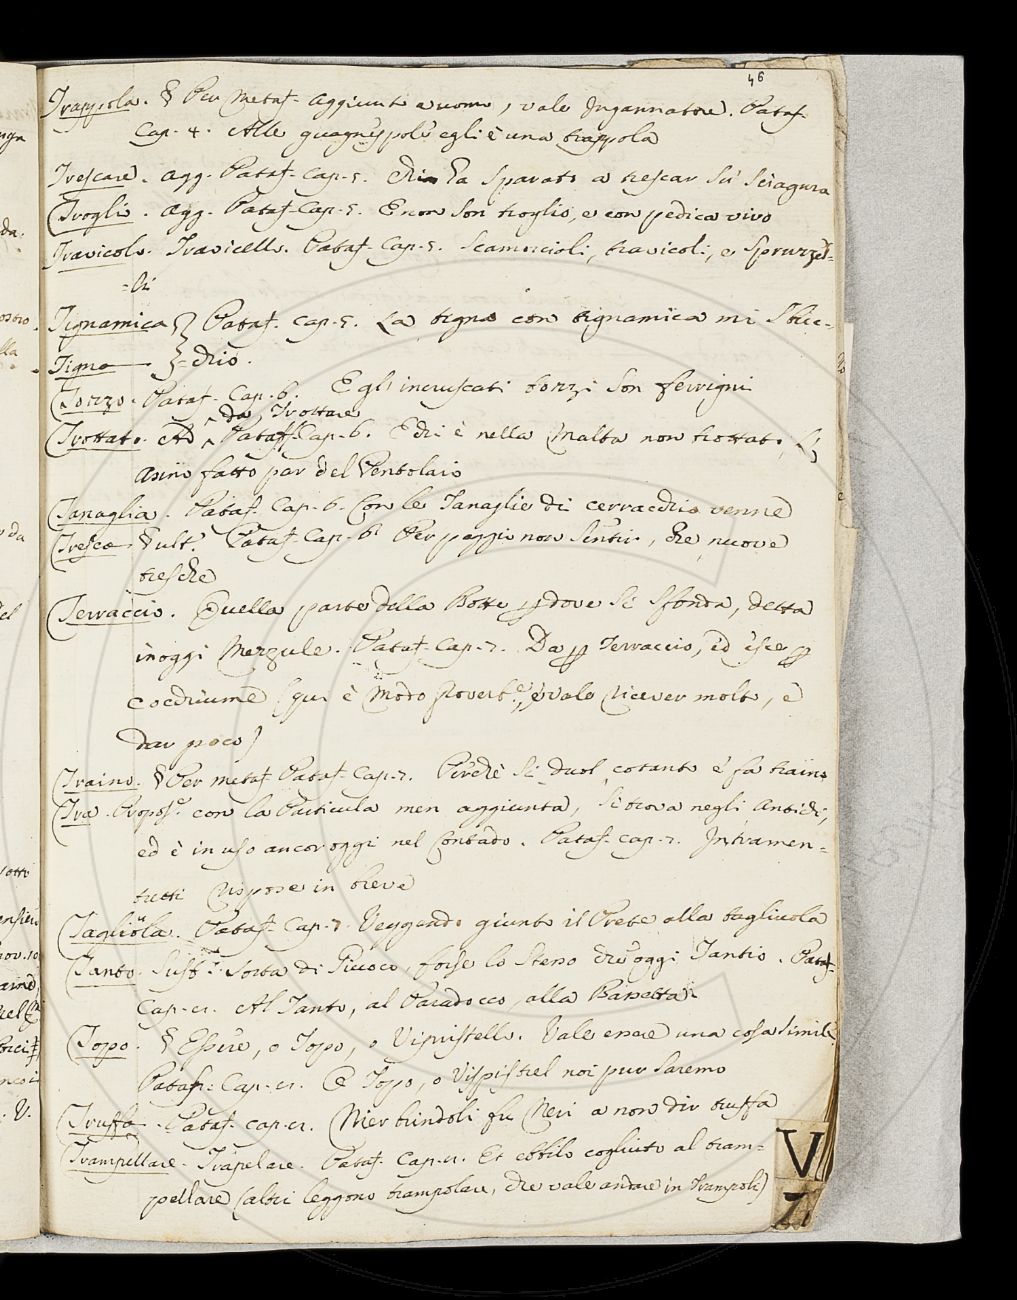 46
Trappola. § Per Metaf. aggiunto a uomo, vale Ingannatore. Pataf.
Cap. 4. Alle guagnespole egli è una trappola
Trescare. agg. Pataf. Cap. 5. Chi ha sparato a trescar su sciagura
Troglio. agg. Pataf. Cap. 5. E non son troglio, e con pedica vivo
Travicolo. Travicello. Pataf. Cap. 5. Scamorcioli, travicoli, e
-li
Tignamica } Pataf. Cap. 5. La tigna con tignamica mi
Tigna } -chio.
Tozzo. Pataf. Cap. 6. E gl' incruscati tozzi son ferrigni
da Trottare
Trottato. Ad Pataff. Cap. 6. E chi è nella Malta non trottato,
Asino fatto par del Pentolaio
Tanaglia. Pataf. Cap. 6. Con le Tanaglie di cerracchio venne
Tresca § ult. Pataf. Cap. 6 Per peggio non sentir, che nuove
tresche
Terraccio. Quella parte della Botte dove si sfonda, detta
inoggi Mezzule. Pataf. Cap. 7. Da Terraccio, ed esce
cocchiume (qui è Modo Proverb.e, e vale ricever molto, e
dar poco)
Traino. § Per metaf. Pataf. Cap. 7. Perchè si duol cotanto e' fa traino
Tra. Propos.e con la Particula men aggiunta, si trova negli Antichi,
ed è in uso ancor oggi nel Contado. Pataf. Cap. 7. Intramen-
tutti rispose in breve
Tagliuola. Pataf. Cap. 7. Veggendo giunto il Prete alla tagliuola
Tanto. Sust. Sorta di Giuoco, forse lo stesso ch'oggi Tantio. Pataf.
Cap. Al Tanto, al Paradocco, alla Bassetta.
Topo. § Essere, o Topo, o Vispistello. Vale essere una cosa simile
Pataf. Cap. O Topo, o Vispistrel noi pur saremo
Truffa. Pataf. Cap. Mier bindoli fu Neri a non dir truffa
Trampellare. Trapelare. Pataf. Cap. Et ebbilo cogliuto al tram-
pellare (altri leggono trampolare, che vale andare in Trampoli)
V
Z